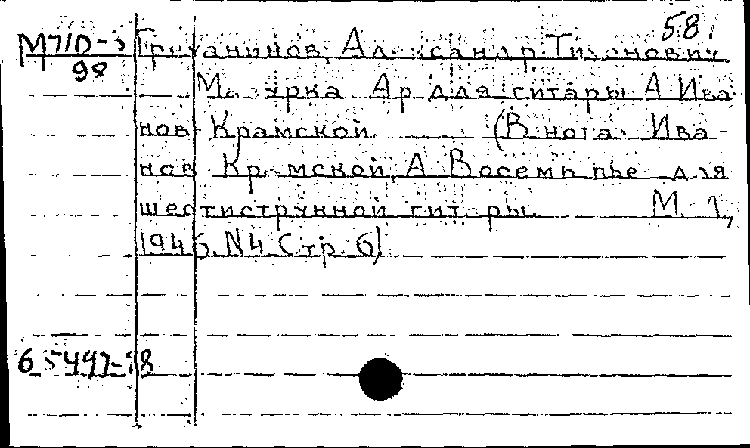 58
М710-5 Гречанинов, Александр Тихонович
98
Мазурка Ар для гитары А Ива
нов-Крамской (В нотах Ива-
нов Крамской, А Восемь пьес для
шестиструнной гитары. М-Л,
1946 N4 Стр 6)